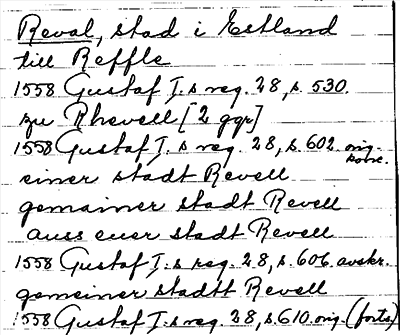 Reval, stad i Estland
till Reffle
1558 Gustaf I.s reg. 28, s. 530.
zu Rhevell [2 ggr]
1558 Gustaf I.s reg. 28, s. 602. orig.
konc.
einer stadt Revell
gemainer stadt Revell
auss euer stadt Revell
1558 Gustaf I.s reg. 28, s. 606. avskr.
gemeiner stadtt Revell
1558 Gustaf I.s reg. 28, s. 610. orig. (forts.)